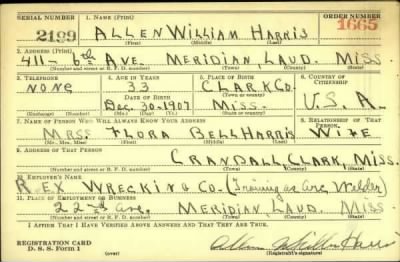 SERIAL NUMBER 1. NAME (Print) ORDER NUMBER
2199 ALLEN WILLIAM HARRIS 1665
(First) (Middle) (Last)
2. ADDRESS (Print)
411- 6th AVE. MERIDIAN, LAUD. MISS.
(Number and street or R. F. D. number) (Town) (County) (State)
3. TELEPHONE 4. AGE IN YEARS 5. PLACE OF BIRTH 6. COUNTRY OF CITIZENSHIP
NONE 33 CLARK CO.
DATE OF BIRTH (Town or county)
Dec. 30-1907 MISS. U.S.A.
(Mo.) (Day) (Yr.) (State or country)
7. NAME OF PERSON WHO WILL ALWAYS KNOW YOUR ADDRESS 8. RELATIONSHIP OF THAT PERSON
MRS. FLORA BELL HARRIS WIFE
(Mr., Mrs., Miss) (First) (Middle) (Last)
9. ADDRESS OF THAT PERSON
CRANDALL, CLARK, MISS.
(Number and street or R. F. D. number) (Town) (County) (State)
10. EMPLOYER'S NAME
REX WRECKING CO. (Training as Arc Welder)
11. PLACE OF EMPLOYMENT OR BUSINESS
22nd Ave. MERIDIAN, LAUD. MISS.
(Number and street or R. F. D. number) (Town) (County) (State)
I AFFIRM THAT I HAVE VERIFIED ABOVE ANSWERS AND THAT THEY ARE TRUE.
REGISTRATION CARD
D. S. S. Form 1 (over) (Registrant's signature)